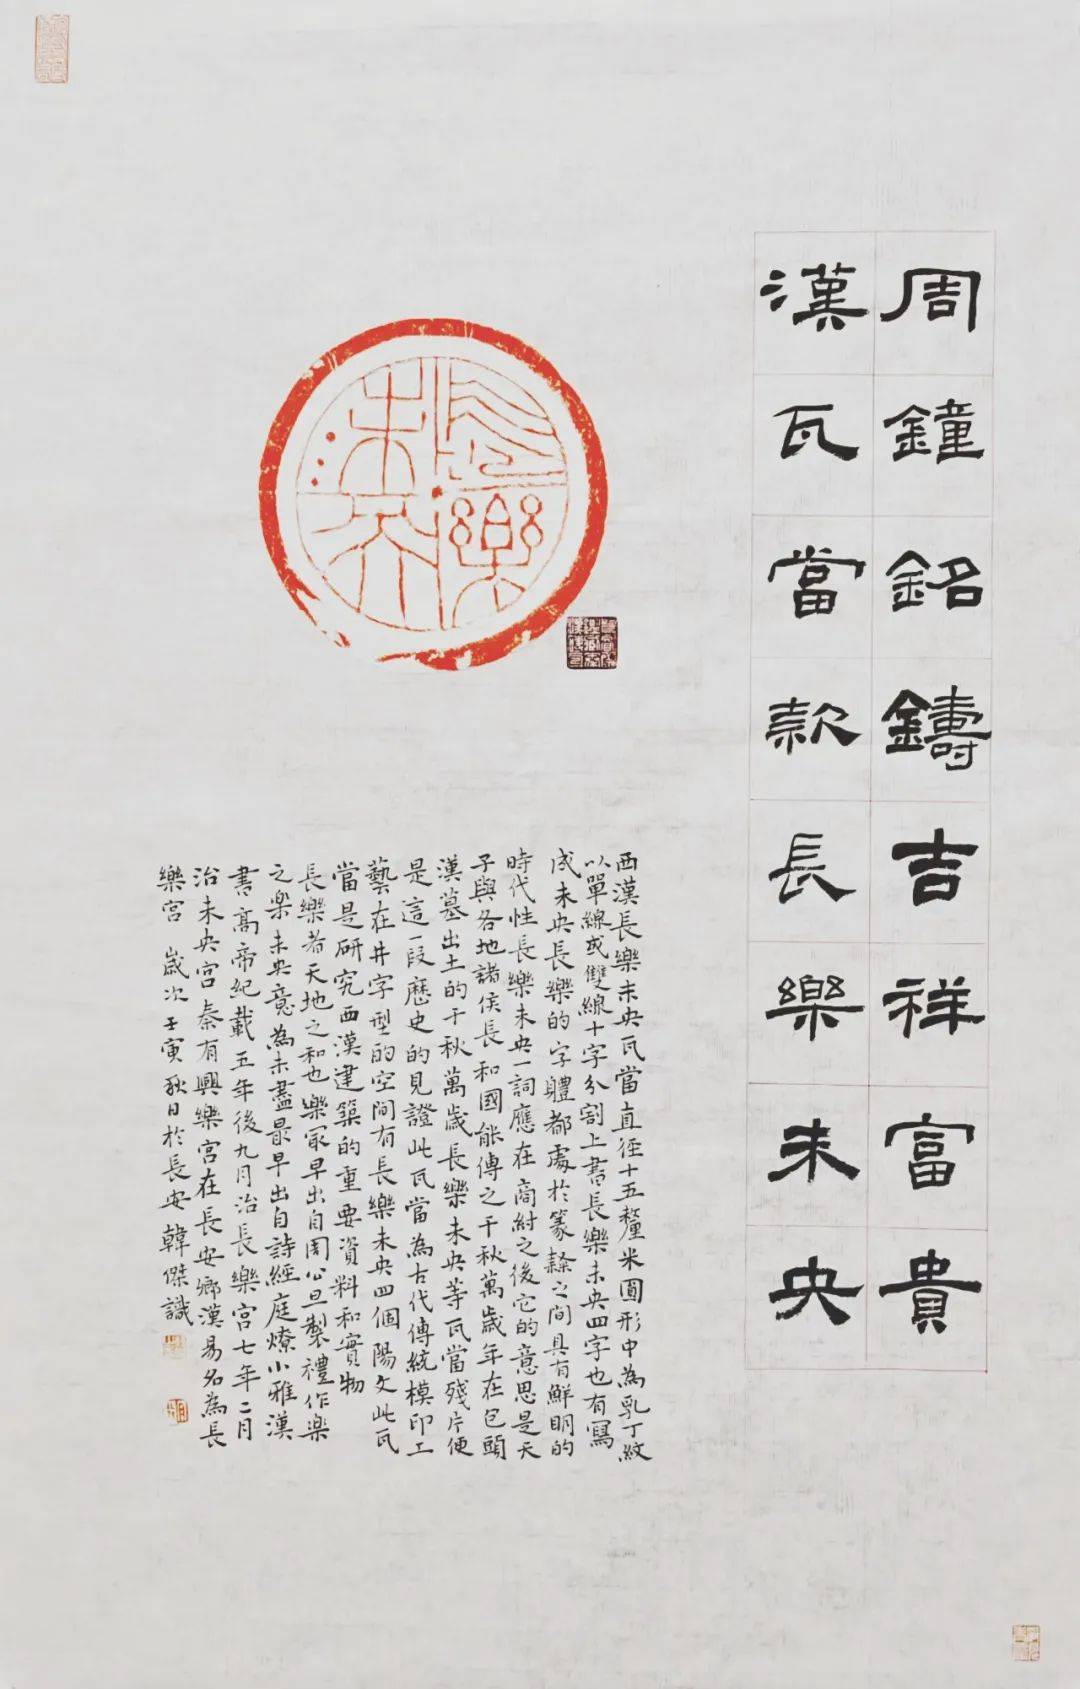 周鐘銘鑄吉祥富貴
漢瓦當款長樂未央
長樂未央
西漢長樂未央瓦當直徑十五釐米圓形中為乳丁紋
以單線或雙線十字分割上書長樂未央四字也有寫
成未央長樂的字體都處於篆隸之間具有鮮明的
時代性長樂未央一詞應在商紂之後它的意思是天
子與各地諸侯長和國能傳之千秋萬歲年在包頭
漢墓出土的千秋萬歲長樂未央等瓦當殘片便
是這一段歷史的見證此瓦當為古代傳統模印工
藝在井字型的空間有長樂未央四個陽文此瓦
當是研究西漢建築的重要資料和實物
長樂者天地之和也樂冣早出自周公旦製禮作樂
之樂未央意為未盡最早出自詩經庭燎小雅漢
書高帝紀載五年後九月治長樂宮七年二月
治未央宮秦有興樂宮在長安鄉漢易名為長
樂宮 歲次壬寅秋日於長安韓傑識